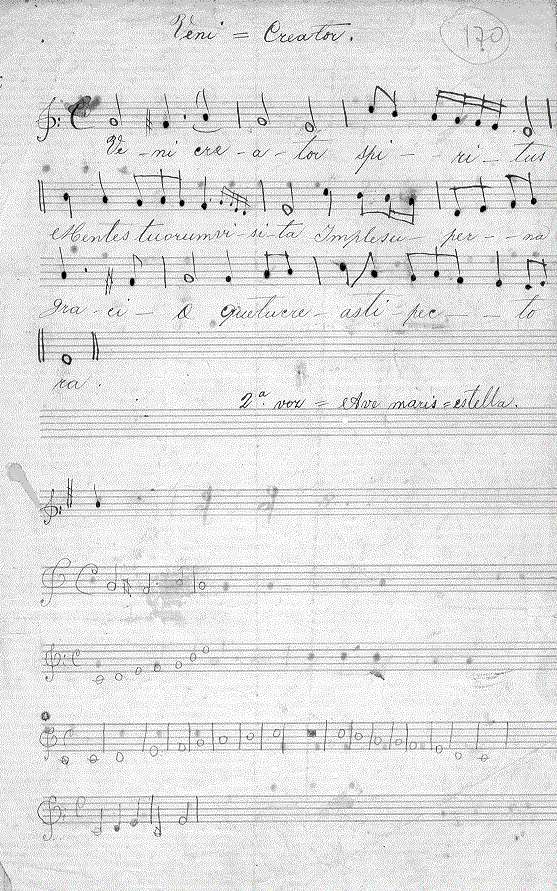 Veni = Creator.
170
Ve - ni cre - a - tor spi - - ri - tus
Mentes tuorum vi - si - ta Imple su - per - - na
gra - ci - a quetucre - asti - pec - - - to
ra.
2ª voz = Ave maris = estella.